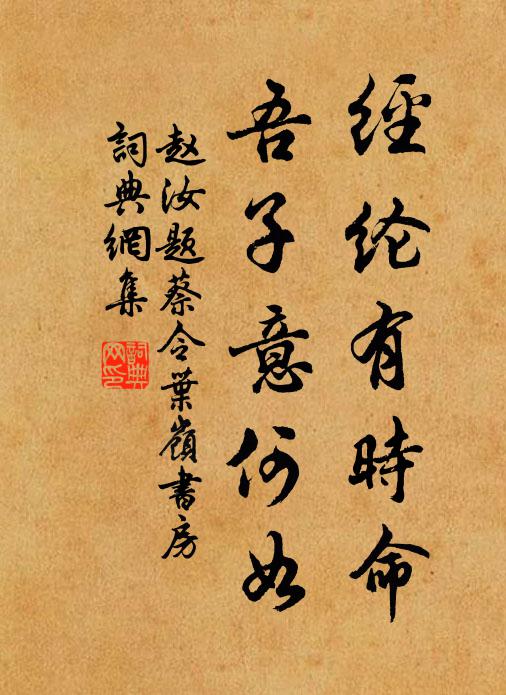 經纶有時命
吾子意何如
赵汝题蔡令葉嶺書房
詞典網集
詞典
网印